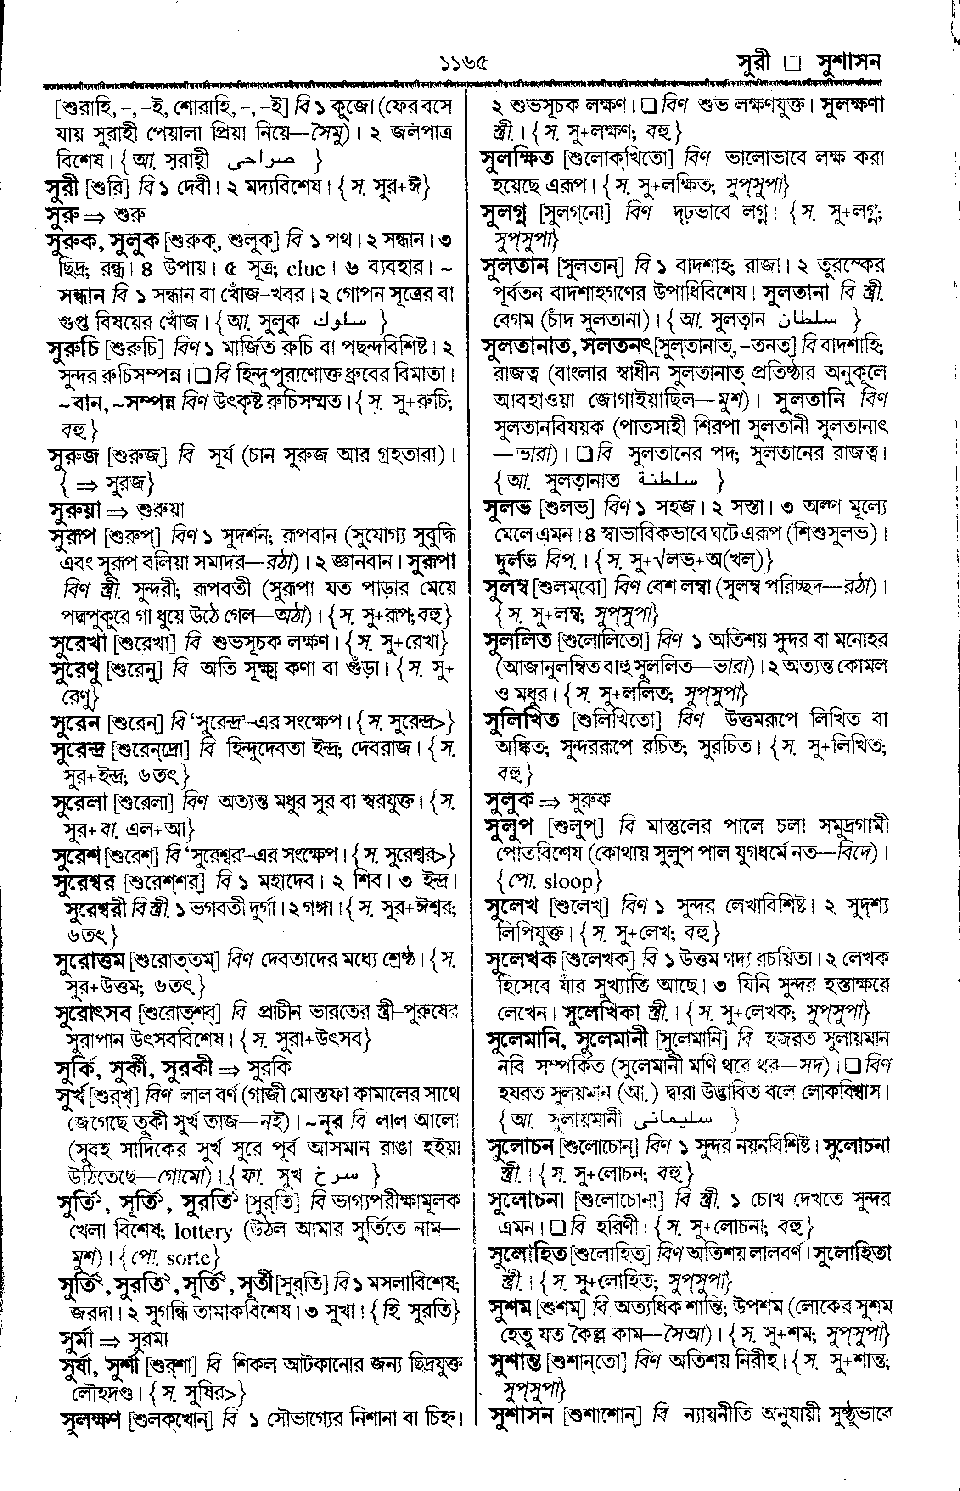 ১১৬৫
সুরী □ সুশাসন
[শুরাহি, -, -ই, শোরাহি, -, -ই] বি ১ কুজো (ফের বসে
যায় সুরাহী পেয়ালা প্রিয়া নিয়ে—সৈমু)। ২ জলপাত্র
বিশেষ। {আ. সুরাহ়ী صراحى }
সুরী [শুরি] বি ১ দেবী। ২ মদ্যবিশেষ। {স. সুর+ঈ}
সুরু ⇒ শুরু
সুরুক, সুলুক [শুরুক্, শুলুক্] বি ১ পথ। ২ সন্ধান। ৩
ছিদ্র; রন্ধ্র। ৪ উপায়। ৫ সূত্র; clue। ৬ ব্যবহার। ~
সন্ধান বি ১ সন্ধান বা খোঁজ-খবর। ২ গোপন সূত্রের বা
গুপ্ত বিষয়ের খোঁজ। {আ. সুলুক سلوك }
সুরুচি [শুরুচি] বিণ ১ মার্জিত রুচি বা পছন্দবিশিষ্ট। ২
সুন্দর রুচিসম্পন্ন। □ বি হিন্দু পুরাণোক্ত ধ্রুবের বিমাতা।
~বান, ~সম্পন্ন বিণ উৎকৃষ্ট রুচিসম্মত। {স. সু+রুচি;
বহু}
সুরুজ [শুরুজ্] বি সূর্য (চান সুরুজ আর গ্রহতারা)।
{ ⇒ সুরজ}
সুরুয়া ⇒ শুরুয়া
সুরূপ [শুরুপ্] বিণ ১ সুদর্শন; রূপবান (সুযোগ্য সুবুদ্ধি
এবং সুরূপ বলিয়া সমাদর—রঠা)। ২ জ্ঞানবান। সুরূপা
বিণ স্ত্রী. সুন্দরী; রূপবতী (সুরূপা যত পাড়ার মেয়ে
পদ্মপুকুরে গা ধুয়ে উঠে গেল—অঠা)। {স. সু+রূপ; বহু}
সুরেখা [শুরেখা] বি শুভসূচক লক্ষণ। {স. সু+রেখা}
সুরেণু [শুরেনু] বি অতি সূক্ষ্ম কণা বা গুঁড়া। {স. সু+
রেণু}
সুরেন [শুরেন্] বি ‘সুরেন্দ্র’-এর সংক্ষেপ। {স. সুরেন্দ্র>}
সুরেন্দ্র [শুরেন্‌দ্রো] বি হিন্দুদেবতা ইন্দ্র; দেবরাজ। {স.
সুর+ইন্দ্র; ৬তৎ}
সুরেলা [শুরেলা] বিণ অত্যন্ত মধুর সুর বা স্বরযুক্ত। {স.
সুর+বা. এল+আ}
সুরেশ [শুরেশ্] বি ‘সুরেশ্বর’-এর সংক্ষেপ। {স. সুরেশ্বর>}
সুরেশ্বর [শুরেশ্‌শর্] বি ১ মহাদেব। ২ শিব। ৩ ইন্দ্র।
সুরেশ্বরী বি স্ত্রী. ১ ভগবতী দুর্গা। ২ গঙ্গা। {স. সুর+ঈশ্বর;
৬তৎ}
সুরোত্তম [শুরোত্‌তম্] বিণ দেবতাদের মধ্যে শ্রেষ্ঠ। {স.
সুর+উত্তম; ৬তৎ}
সুরোৎসব [শুরোত্‌শব্] বি প্রাচীন ভারতের স্ত্রী-পুরুষের
সুরাপান উৎসববিশেষ। {স. সুরা+উৎসব}
সুর্কি, সুর্কী, সুরকী ⇒ সুরকি
সুর্খ [শুর্‌খ্] বিণ লাল বর্ণ (গাজী মোস্তফা কামালের সাথে
জেগেছে তুর্কী সুর্খ তাজ—নই)। ~নূর বি লাল আলো
(সুবহ্ সাদিকের সুর্খ সূরে পূর্ব আসমান রাঙা হইয়া
উঠিতেছে—গোমো)। {ফা. সুর্খ سرخ }
সুর্তি১, সূর্তি১, সুরতি১ [সুর্‌তি] বি ভাগ্যপরীক্ষামূলক
খেলা বিশেষ; lottery (উঠল আমার সুর্তিতে নাম—
মুশ)। {পো. sorte}
সুর্তি২, সুরতি২, সূর্তি২, সূর্তী [সুর্‌তি] বি ১ মসলাবিশেষ;
জরদা। ২ সুগন্ধি তামাকবিশেষ। ৩ সুখা। {হি. সুরতি}
সুর্মা ⇒ সুরমা
সুর্ষা, সুর্শা [শুর্‌শা] বি শিকল আটকানোর জন্য ছিদ্রযুক্ত
লৌহদণ্ড। {স. সুষির>}
সুলক্ষণ [শুলক্‌খোন্] বি ১ সৌভাগ্যের নিশানা বা চিহ্ন।
২ শুভসূচক লক্ষণ। □ বিণ শুভ লক্ষণযুক্ত। সুলক্ষণা
স্ত্রী.। {স. সু+লক্ষণ; বহু}
সুলক্ষিত [শুলোক্‌খিতো] বিণ ভালোভাবে লক্ষ করা
হয়েছে এরূপ। {স. সু+লক্ষিত; সুপ্‌সুপা}
সুলগ্ন [সুলগ্‌নো] বিণ দৃঢ়ভাবে লগ্ন। {স. সু+লগ্ন;
সুপ্‌সুপা}
সুলতান [সুল্‌তান্] বি ১ বাদশাহ; রাজা। ২ তুরস্কের
পূর্বতন বাদশাহগণের উপাধিবিশেষ। সুলতানা বি স্ত্রী.
বেগম (চাঁদ সুলতানা)। {আ. সুলত়ান سلطان }
সুলতানাত, সলতনৎ [সুল্‌তানাত্, -তনত্] বি বাদশাহি;
রাজত্ব (বাংলার স্বাধীন সুলতানাত্ প্রতিষ্ঠার অনুকূলে
আবহাওয়া জোগাইয়াছিল—মুশ)। সুলতানি বিণ
সুলতানবিষয়ক (পাতসাহী শিরপা সুলতানী সুলতানাৎ
—ভারা)। □ বি সুলতানের পদ; সুলতানের রাজত্ব।
{আ. সুলত়ানাত سلطنة }
সুলভ [শুলভ্] বিণ ১ সহজ। ২ সস্তা। ৩ অল্প মূল্যে
মেলে এমন। ৪ স্বাভাবিকভাবে ঘটে এরূপ (শিশুসুলভ)।
দুর্লভ বিপ.। {স. সু+√লভ্+অ(খল)}
সুলম্ব [শুলম্‌বো] বিণ বেশ লম্বা (সুলম্ব পরিচ্ছদ—রঠা)।
{স. সু+লম্ব; সুপ্‌সুপা}
সুললিত [শুলোলিতো] বিণ ১ অতিশয় সুন্দর বা মনোহর
(আজানুলম্বিত বাহু সুললিত—ভারা)। ২ অত্যন্ত কোমল
ও মধুর। {স. সু+ললিত; সুপ্‌সুপা}
সুলিখিত [শুলিখিতো] বিণ উত্তমরূপে লিখিত বা
অঙ্কিত; সুন্দররূপে রচিত; সুরচিত। {স. সু+লিখিত;
বহু}
সুলুক ⇒ সুরুক
সুলুপ [শুলুপ্] বি মাস্তুলের পালে চলা সমুদ্রগামী
পোতবিশেষ (কোথায় সুলুপ পাল যুগধর্মে নত—বিদে)।
{পো. sloop}
সুলেখ [শুলেখ্] বিণ ১ সুন্দর লেখাবিশিষ্ট। ২ সুদৃশ্য
লিপিযুক্ত। {স. সু+লেখ; বহু}
সুলেখক [শুলেখক্] বি ১ উত্তম গদ্য রচয়িতা। ২ লেখক
হিসেবে যাঁর সুখ্যাতি আছে। ৩ যিনি সুন্দর হস্তাক্ষরে
লেখেন। সুলেখিকা স্ত্রী.। {স. সু+লেখক; সুপ্‌সুপা}
সুলেমানি, সুলেমানী [সুলেমানি] বি হজরত সুলায়মান
নবি সম্পর্কিত (সুলেমানী মণি থরে থর—সদ)। □ বিণ
হযরত সুলয়মান (আ.) দ্বারা উদ্ভাবিত বলে লোকবিশ্বাস।
{আ. সুলায়মানী سليمانى }
সুলোচন [শুলোচোন্] বিণ ১ সুন্দর নয়নবিশিষ্ট। সুলোচনা
স্ত্রী.। {স. সু+লোচন; বহু}
সুলোচনা [শুলোচোনা] বি স্ত্রী. ১ চোখ দেখতে সুন্দর
এমন। □ বি হরিণী। {স. সু+লোচনা; বহু}
সুলোহিত [শুলোহিত্] বিণ অতিশয় লালবর্ণ। সুলোহিতা
স্ত্রী.। {স. সু+লোহিত; সুপ্‌সুপা}
সুশম [শুশম্] বি অত্যধিক শান্তি; উপশম (লোকের সুশম
হেতু যত কৈল্ল কাম—সৈআ)। {স. সু+শম; সুপ্‌সুপা}
সুশান্ত [শুশান্‌তো] বিণ অতিশয় নিরীহ। {স. সু+শান্ত;
সুপ্‌সুপা}
সুশাসন [শুশাশোন্] বি ন্যায়নীতি অনুযায়ী সুষ্ঠুভাবে